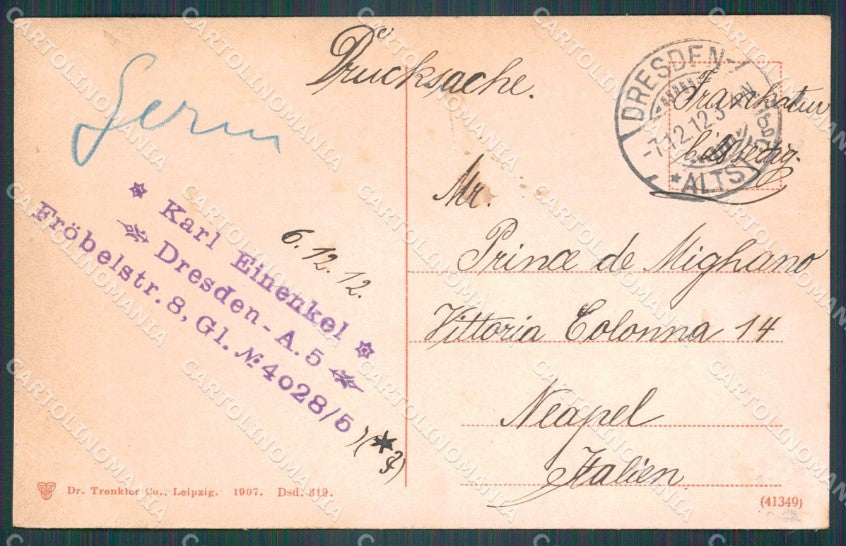 Drucksache.
Germ
DRESDEN-
ALTST.
-7.12.12.3
Frankatur
* Karl Einenkel *
Dresden-A. 5
Fröbelstr. 8, Gl. № 4028/5
6.12.12.
Mr.
Prince de Mighano
Vittoria Colonna 14
Neapel
Italien.
Dr. Trenkler Co., Leipzig. 1907. Dsd. 319.
(41349)
CARTOLINOMANIA